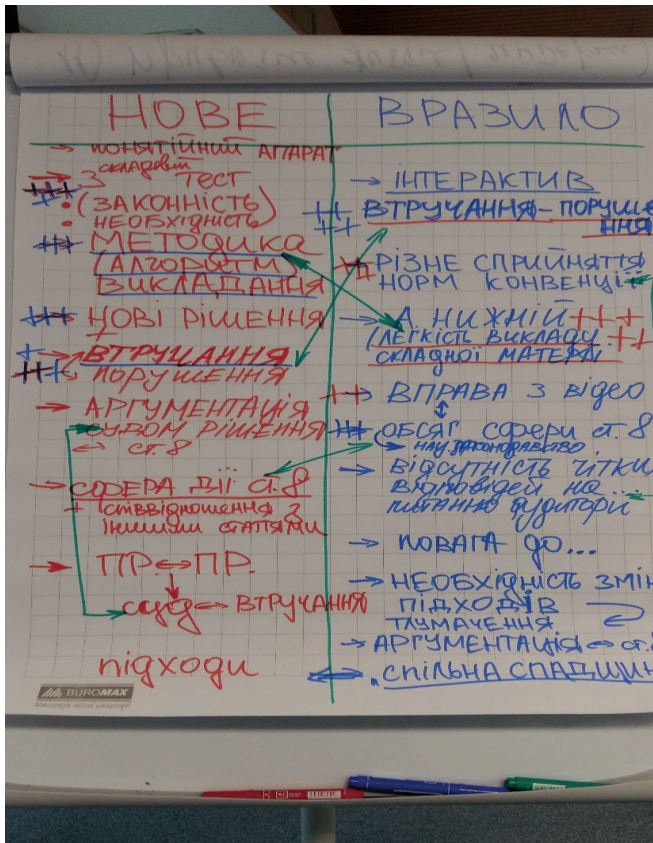 НОВЕ
→ ПОНЯТІЙНИЙ АПАРАТ
складовий
→ 3 ТЕСТ
+++
+ • (ЗАКОННІСТЬ
• НЕОБХІДНІСТЬ)
+++ МЕТОДИКА
(АЛГОРИТМ)
ВИКЛАДАННЯ
+++ НОВІ РІШЕННЯ
+
+ → ВТРУЧАННЯ
+++ ПОРУШЕННЯ
→ АРГУМЕНТАЦІЯ
СУДОМ РІШЕННЯ
↔ ст. 8
→ СФЕРА ДІЇ СТ. 8
+ СПІВВІДНОШЕННЯ З
ІНШИМИ СТАТЯМИ
→ ПР ↔ ПР.
суд ↔ ВТРУЧАННЯ
підходи
BUROMAX
ВРАЗИЛО
→ ІНТЕРАКТИВ
++ ВТРУЧАННЯ – ПОРУШЕ
++ ННЯ
РІЗНЕ СПРИЙНЯТТЯ
НОРМ КОНВЕНЦІЇ
→ А НИЖНІЙ +++
(ЛЕГКІСТЬ ВИКЛАДУ ++
СКЛАДНОЇ МАТЕРІ
++ ВПРАВА З відео
++ ОБСЯГ сфери ст. 8
нац законодавство
→ ВІДСУТНІСТЬ ЧІТКИ
ВІДПОВІДЕЙ НА
питання аудиторії
→ ПОВАГА ДО...
→ НЕОБХІДНІСТЬ ЗМІН
ПІДХОДІВ
ТЛУМАЧЕННЯ
→ АРГУМЕНТАЦІЯ ↔ ст.
СПІЛЬНА СПАДЩИН